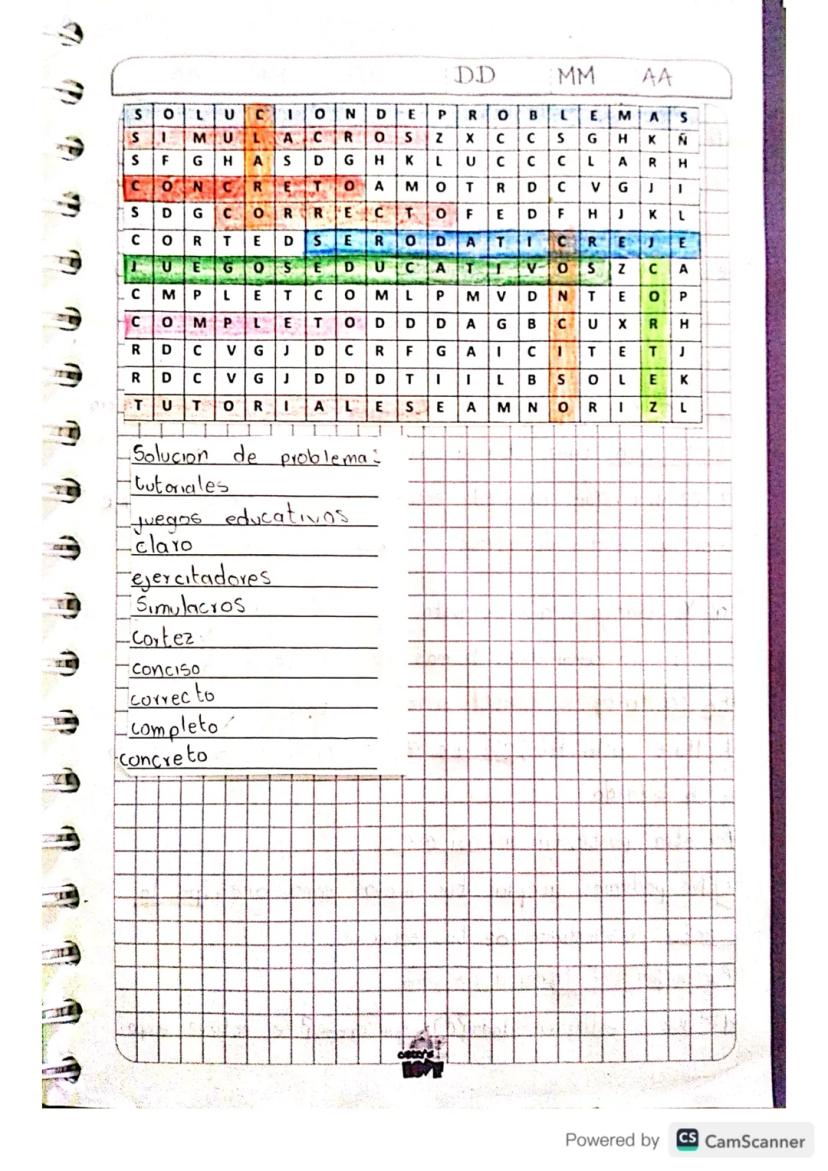 DD MM AA
S O L U C I O N D E P R O B L E M A S
S I M U L A C R O S Z X C C S G H K Ñ
S F G H A S D G H K L U C C C L A R H
C O N C R E T O A M O T R D C V G J I
S D G C O R R E C T O F E D F H J K L
C O R T E D S E R O D A T I C R E J E
J U E G O S E D U C A T I V O S Z C A
C M P L E T C O M L P M V D N T E O P
C O M P L E T O D D D A G B C U X R H
R D C V G J D C R F G A I C I T E T J
R D C V G J D D D T I I L B S O L E K
T U T O R I A L E S E A M N O R I Z L
Solucion de problema:
tutoriales
juegos educativos
claro
ejercitadores
Simulacros
cortez
conciso
correcto
completo
concreto
Powered by CS CamScanner